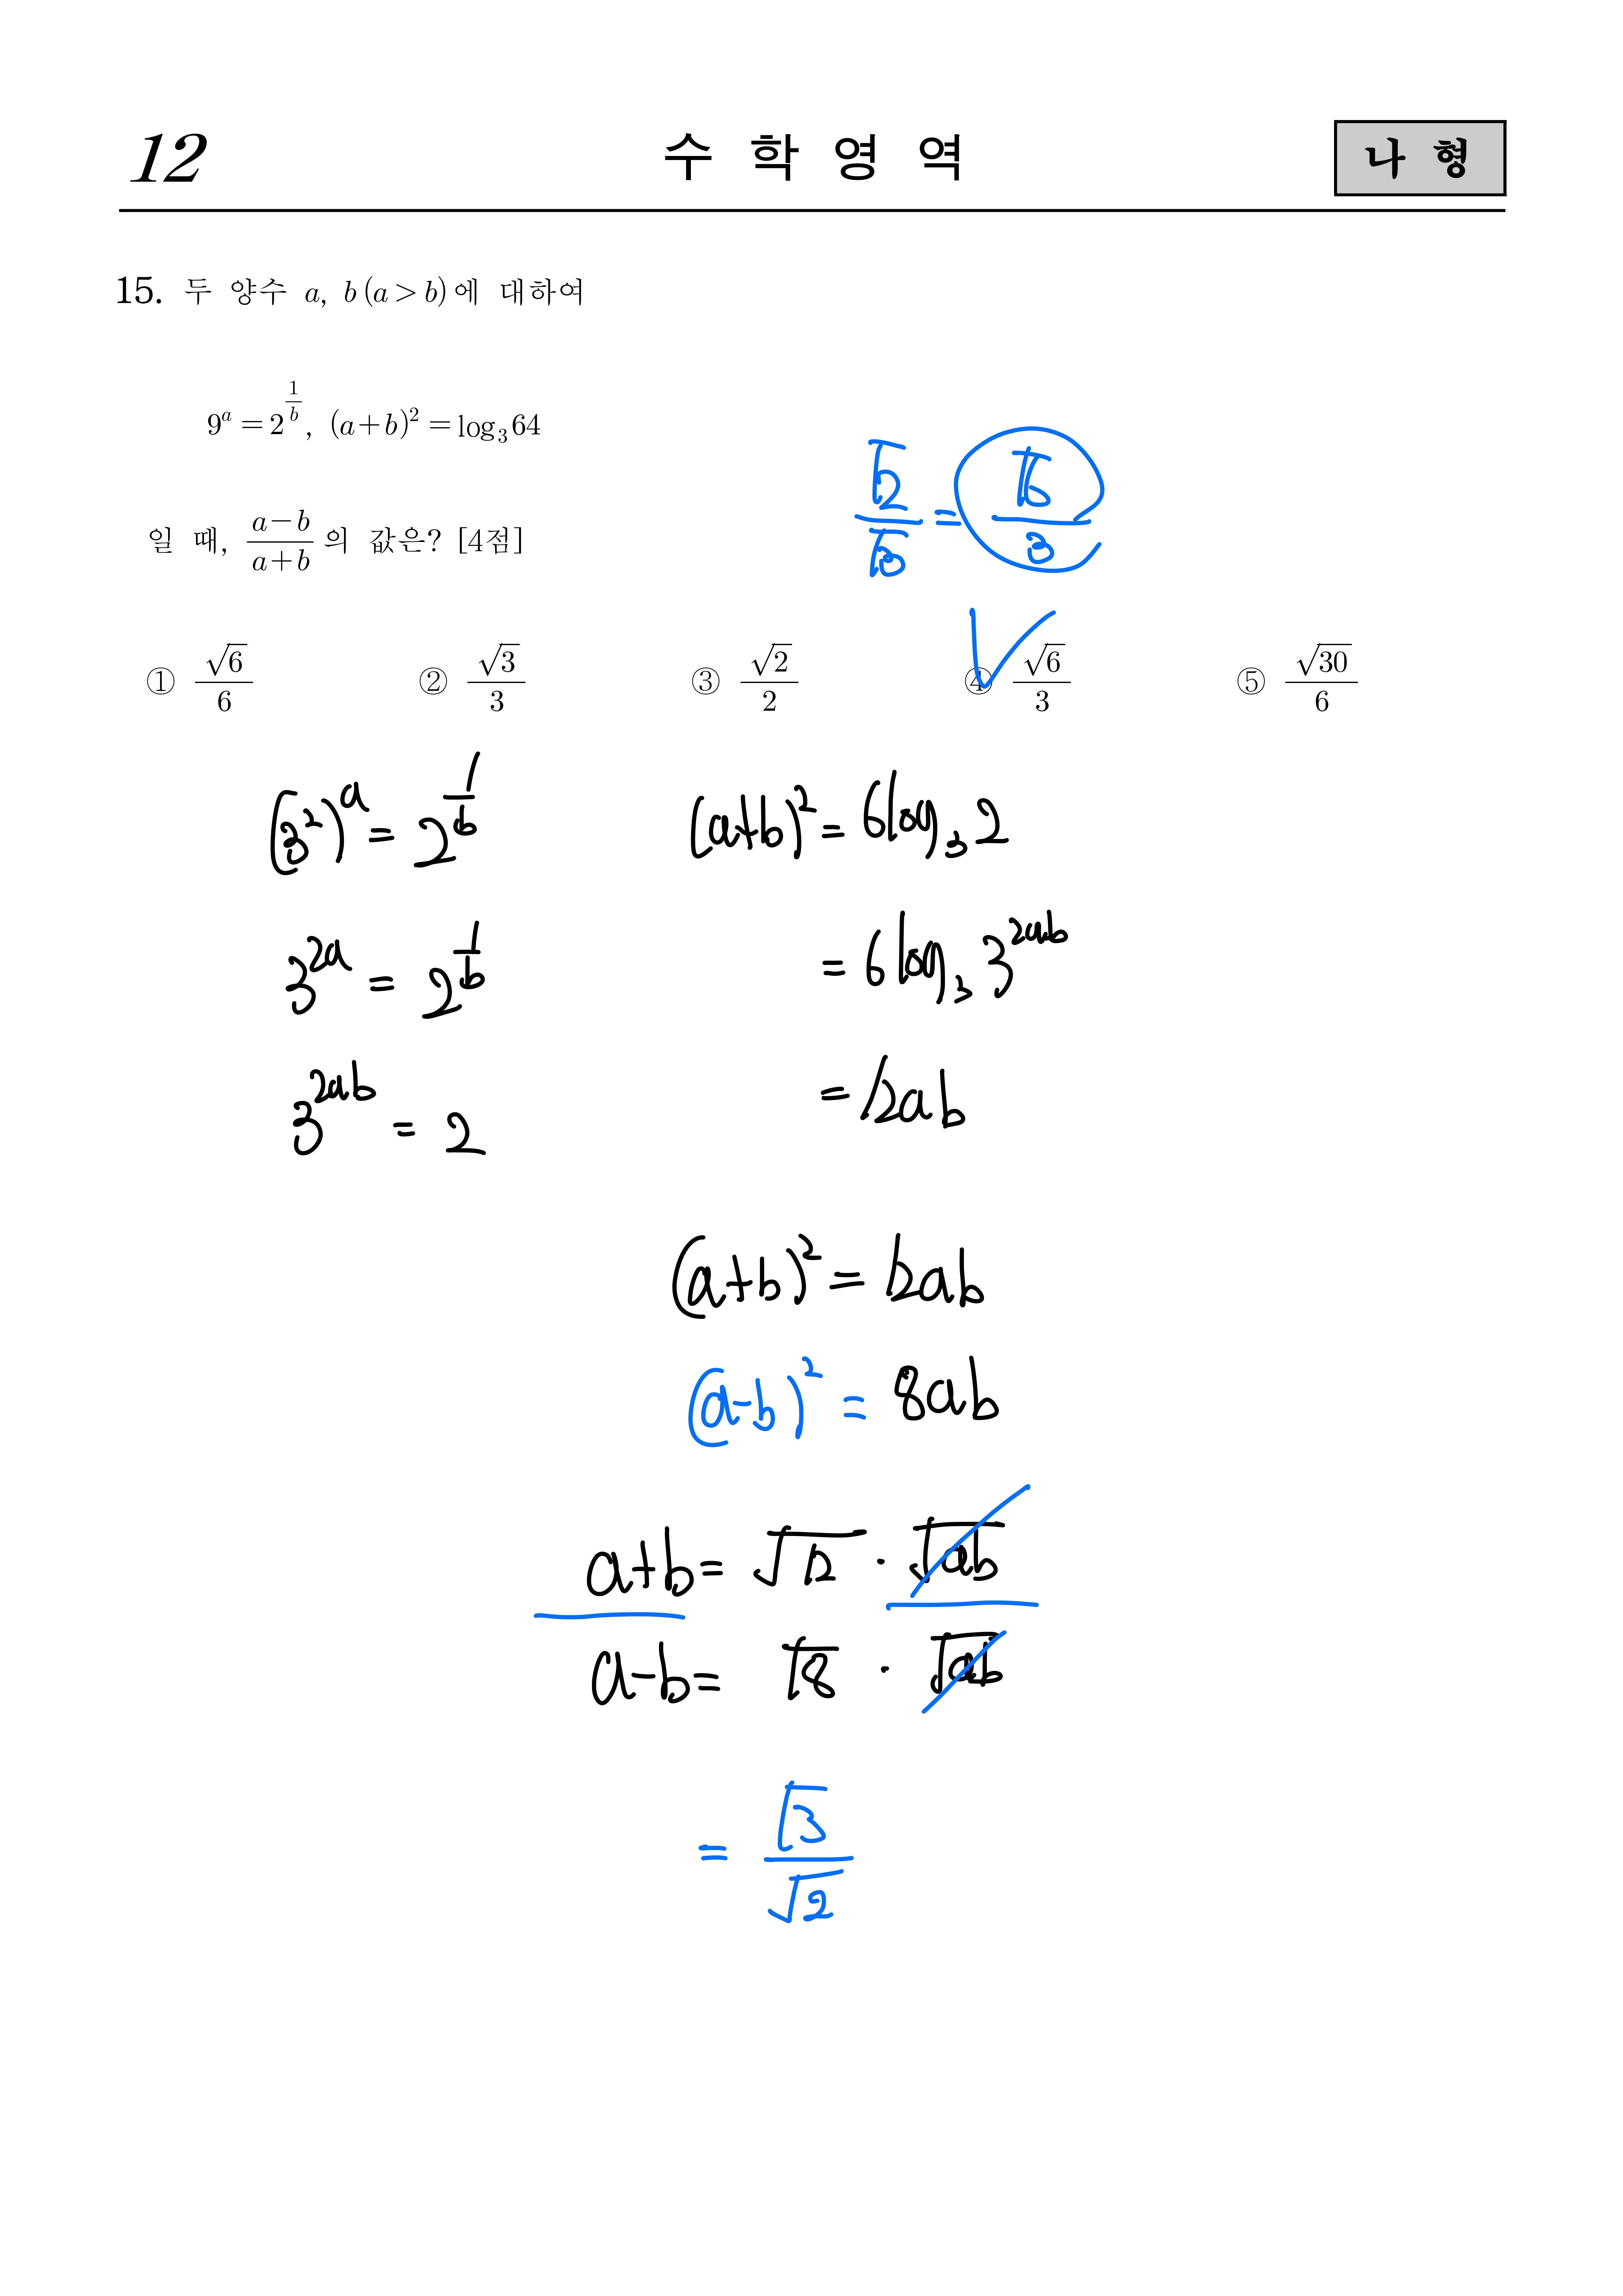 12 수 학 영 역 나 형
15. 두 양수 a, b (a > b)에 대하여
9^a = 2^(1/b), (a+b)^2 = log_3 64
√2/√3 = √6/3
일 때, (a-b)/(a+b) 의 값은? [4점]
① √6/6 ② √3/3 ③ √2/2 ④ √6/3 ⑤ √30/6
(3^2)^a = 2^(1/b)
3^(2a) = 2^(1/b)
3^(2ab) = 2
(a+b)^2 = 6log_3 2
= 6log_3 3^(2ab)
= 12ab
(a+b)^2 = 12ab
(a-b)^2 = 8ab
a+b = √12 · √ab
a-b = √8 · √ab
= √3/√2